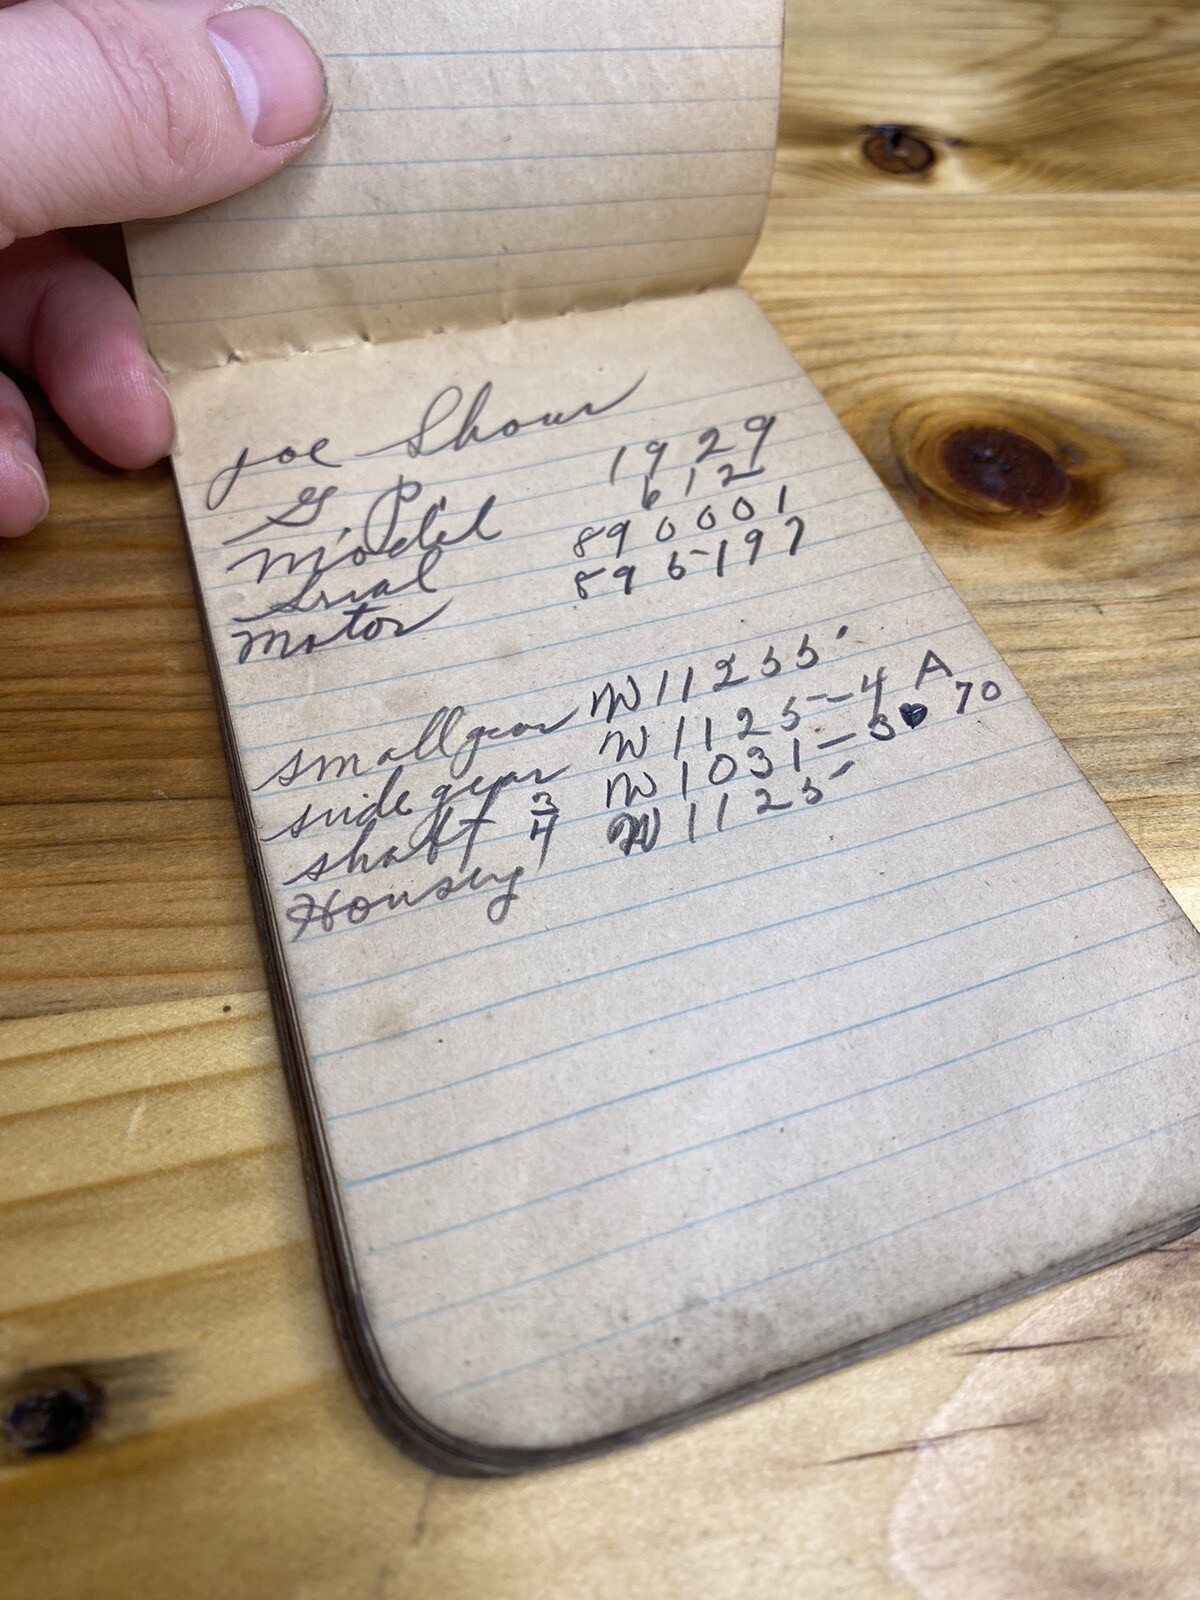 Joe Shour
G. P. 1929
Model 612
Srial 890001
Motor 895197
small gear W11255
side gear W1125-4 A
shaft 3/4 W1031-3 70
Housing W1125